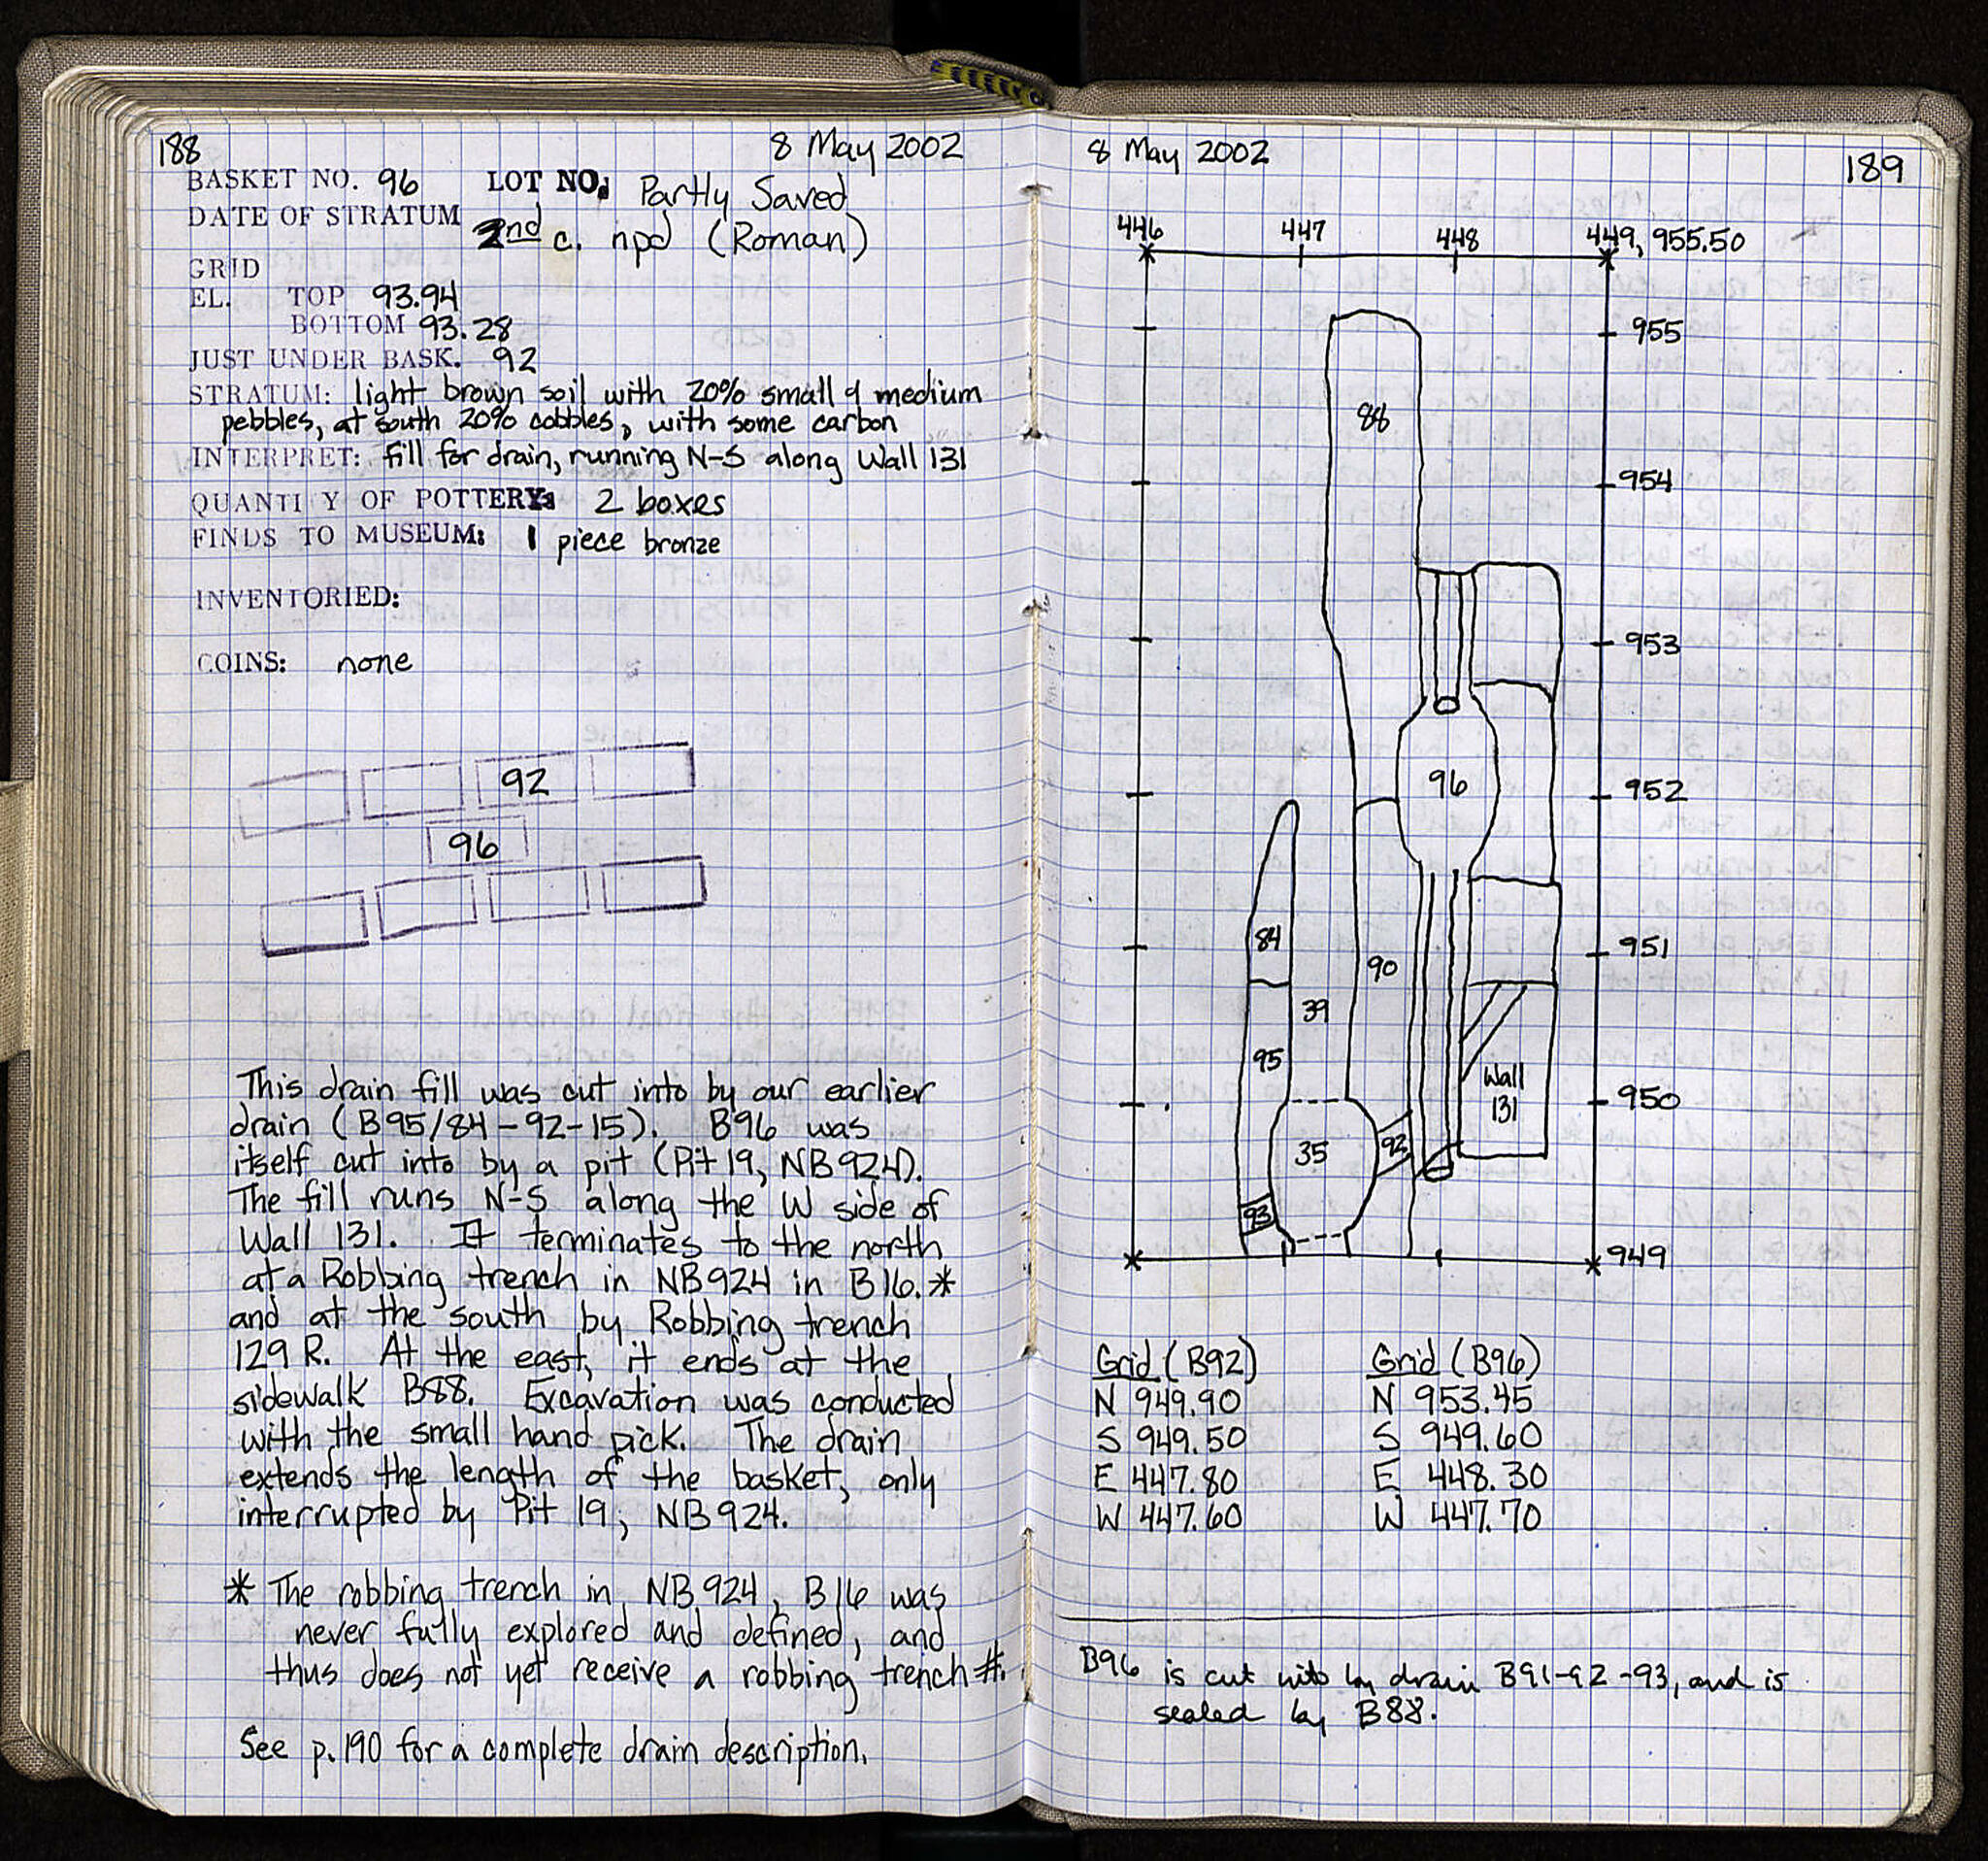 188
8 May 2002
BASKET NO. 96 LOT NO. Partly Saved
DATE OF STRATUM 2nd c. npd (Roman)
GRID
EL. TOP 93.94
BOTTOM 93.28
JUST UNDER BASK. 92
STRATUM: light brown soil with 20% small & medium
pebbles, at south 20% cobbles, with some carbon
INTERPRET: fill for drain, running N-S along Wall 131
QUANTI Y OF POTTERY: 2 boxes
FINDS TO MUSEUM: 1 piece bronze
INVENTORIED:
COINS: none
92
96
This drain fill was cut into by our earlier
drain (B95/84-92-15). B96 was
itself cut into by a pit (Pit 19, NB 924).
The fill runs N-S along the W side of
Wall 131. It terminates to the north
at a Robbing trench in NB 924 in B16.*
and at the south by Robbing trench
129 R. At the east, it ends at the
sidewalk B88. Excavation was conducted
with the small hand pick. The drain
extends the length of the basket, only
interrupted by Pit 19, NB 924.
* The robbing trench in NB 924, B16 was
never fully explored and defined, and
thus does not yet receive a robbing trench #.
See p. 190 for a complete drain description.
8 May 2002
189
446 447 448 449, 955.50
955
88
954
953
96
952
84
951
90
39
95
Wall
131
950
35
92
93
949
Grid (B92) Grid (B96)
N 949.90 N 953.45
S 949.50 S 949.60
E 447.80 E 448.30
W 447.60 W 447.70
B96 is cut into by drain B91-92-93, and is
sealed by B88.